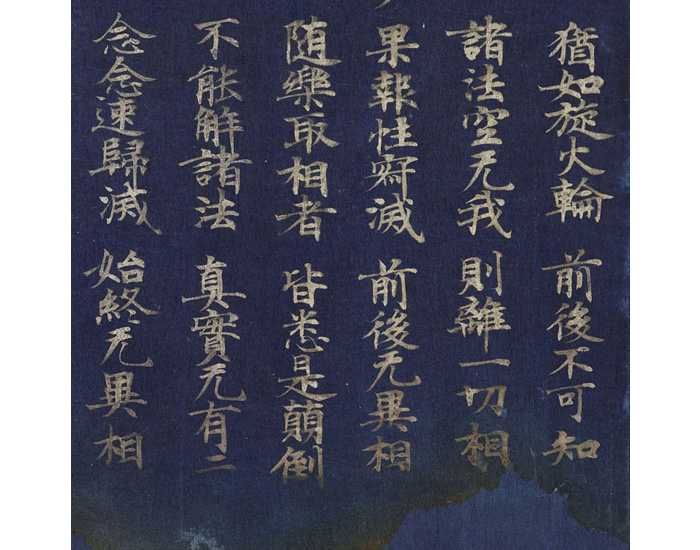 猶如旋火輪 前後不可知
諸法空无我 則離一切相
果報性寂滅 前後无異相
随樂取相者 皆悉是顛倒
不能解諸法 真實无有二
念念速歸滅 始終无異相